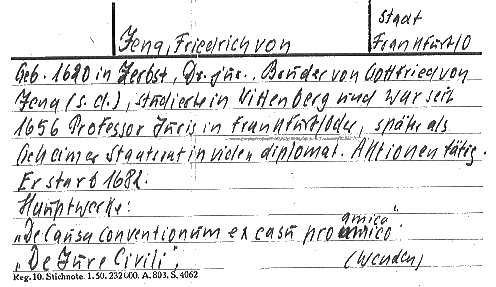 Stadt
Jena, Friedrich von Frankfurt/O
Geb. 1620 in Zerbst, Dr. jur., Bruder von Gottfried von
Jena (s. d.), studierte in Wittenberg und war seit
1656 Professor Juris in Frankfurt/Oder, später als
Geheimer Staatsrat in vielen diplomat. Aktionen tätig.
Er starb 1682.
Hauptwerke:
„De Causa conventionum ex casu pro amico“.
„De Jure Civili“,
(Wenden)
Reg. 10. Stichnote. I. 50. 232000. A. 803. S. 4062